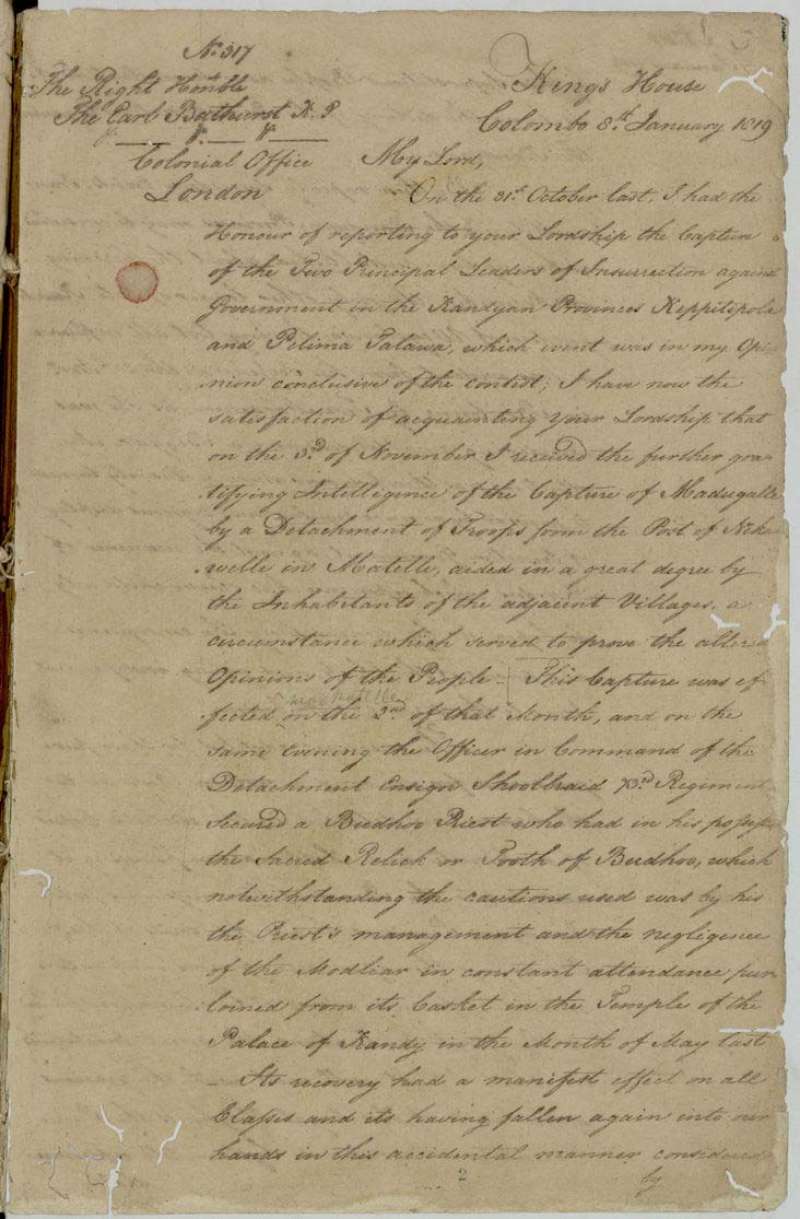 No. 317
The Right Honble
The Earl Bathurst K. G
&c. &c. &c.
Colonial Office
London
Kings House
Colombo 8th January 1819
My Lord,
On the 31st October last, I had the
Honour of reporting to your Lordship the Capture
of the Two Principal Leaders of Insurrection against
Government in the Kandyan Provinces Keppitipole
and Pilima Talawa, which event was in my Opi-
nion conclusive of the contest; I have now the
satisfaction of acquainting your Lordship that
on the 3rd of November I received the further gra-
tifying Intelligence of the Capture of Madugalle
by a Detachment of Troops from the Post of
welle in Matelle, aided in a great degree by
the Inhabitants of the adjacent Villages, a
circumstance which served to prove the altered
Opinions of the People. This Capture was ef-
fected on the 2nd of that Month, and on the
same evening the Officer in Command of the
Detachment Ensign Shoolbraid 73rd Regiment
secured a Budhoo Priest who had in his
the Sacred Relick or Tooth of Budhoo, which
notwithstanding the cautions used was by his
the Priest's management and the negligence
of the Modliar in constant attendance pur-
loined from its Casket in the Temple of the
Palace of Kandy in the Month of May last
Its recovery had a manifest effect on all
Classes and its having fallen again into our
hands in this accidental manner considered
by
2